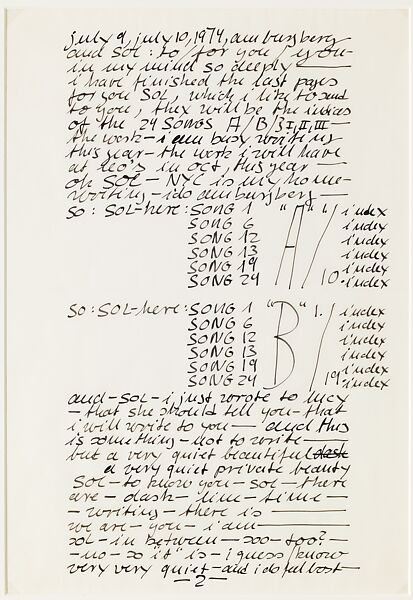 july 9, july 10, 1974, am burgberg
and SOL: to/for you/you-
in my mind so deeply —
i have finished the last pages
for you SOL, which i like to send
to you, they will be the indices
of the 24 SONGS A/B/3 I, II, III —
the work - i am busy writing
this year - the work i will have
at leo's in oct, this year —
oh SOL - NYC is my home -
writing - i do am burgberg —
so: SOL-here: SONG 1 "A" 1. index
SONG 6 index
SONG 12 index
SONG 13 index
SONG 19 index
SONG 24 10. index
so: SOL-here: SONG 1 "B" 1. index
SONG 6 index
SONG 12 index
SONG 13 index
SONG 19 index
SONG 24 19. index
and - SOL - i just wrote to lucy
- that she should tell you - that
i will write to you — and this
is something - not to write —
but a very quiet beautiful dash
a very quiet private beauty
SOL - to know you - sol - there
are - dash - line - time —
- writing - there is —
we are - you - i am —
in between — too? —
- no - so "it" is - i guess/know
very very quiet - and i do
— 2 —